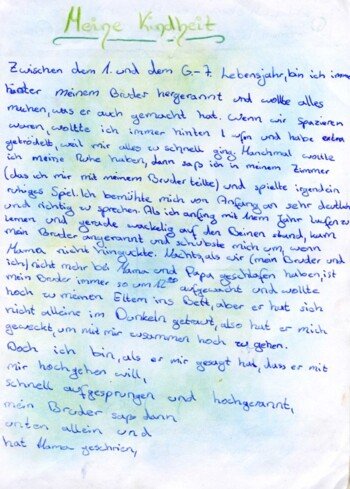 Meine Kindheit
Zwischen dem 1. und dem 6-7 Lebensjahr, bin ich imme
hinter meinem Bruder hergerannt und wollte alles
machen, was er auch gemacht hat. Wenn wir spazieren
waren, wollte ich immer hinten sein und habe extra
getrödelt, weil mir alles zu schnell ging. Manchmal wollte
ich meine Ruhe haben, dann saß ich in meinem Zimmer
(das ich mir mit meinem Bruder teilte) und spielte irgendein
ruhiges Spiel. Ich bemühte mich von Anfang an sehr deutlich
und richtig zu sprechen. Als ich anfing mit Jahr laufen zu
lernen und gerade wackelig auf den Beinen stand, kam
mein Bruder angerannt und schubste mich um, wenn
Mama nicht hinguckte. Nachts, als wir (mein Bruder und
ich) nicht mehr bei Mama und Papa geschlafen haben, ist
mein Bruder immer so um 12:00 aufgewacht und wollte
hoch zu meinen Eltern ins Bett, aber er hat sich
nicht alleine im Dunkeln getraut, also hat er mich
geweckt, um mit mir zusammen hoch zu gehen.
Doch ich bin, als er mir gesagt hat, dass er mit
mir hochgehen will,
schnell aufgesprungen und hochgerannt,
mein Bruder sass dann
unten allein und
hat Mama geschrien,